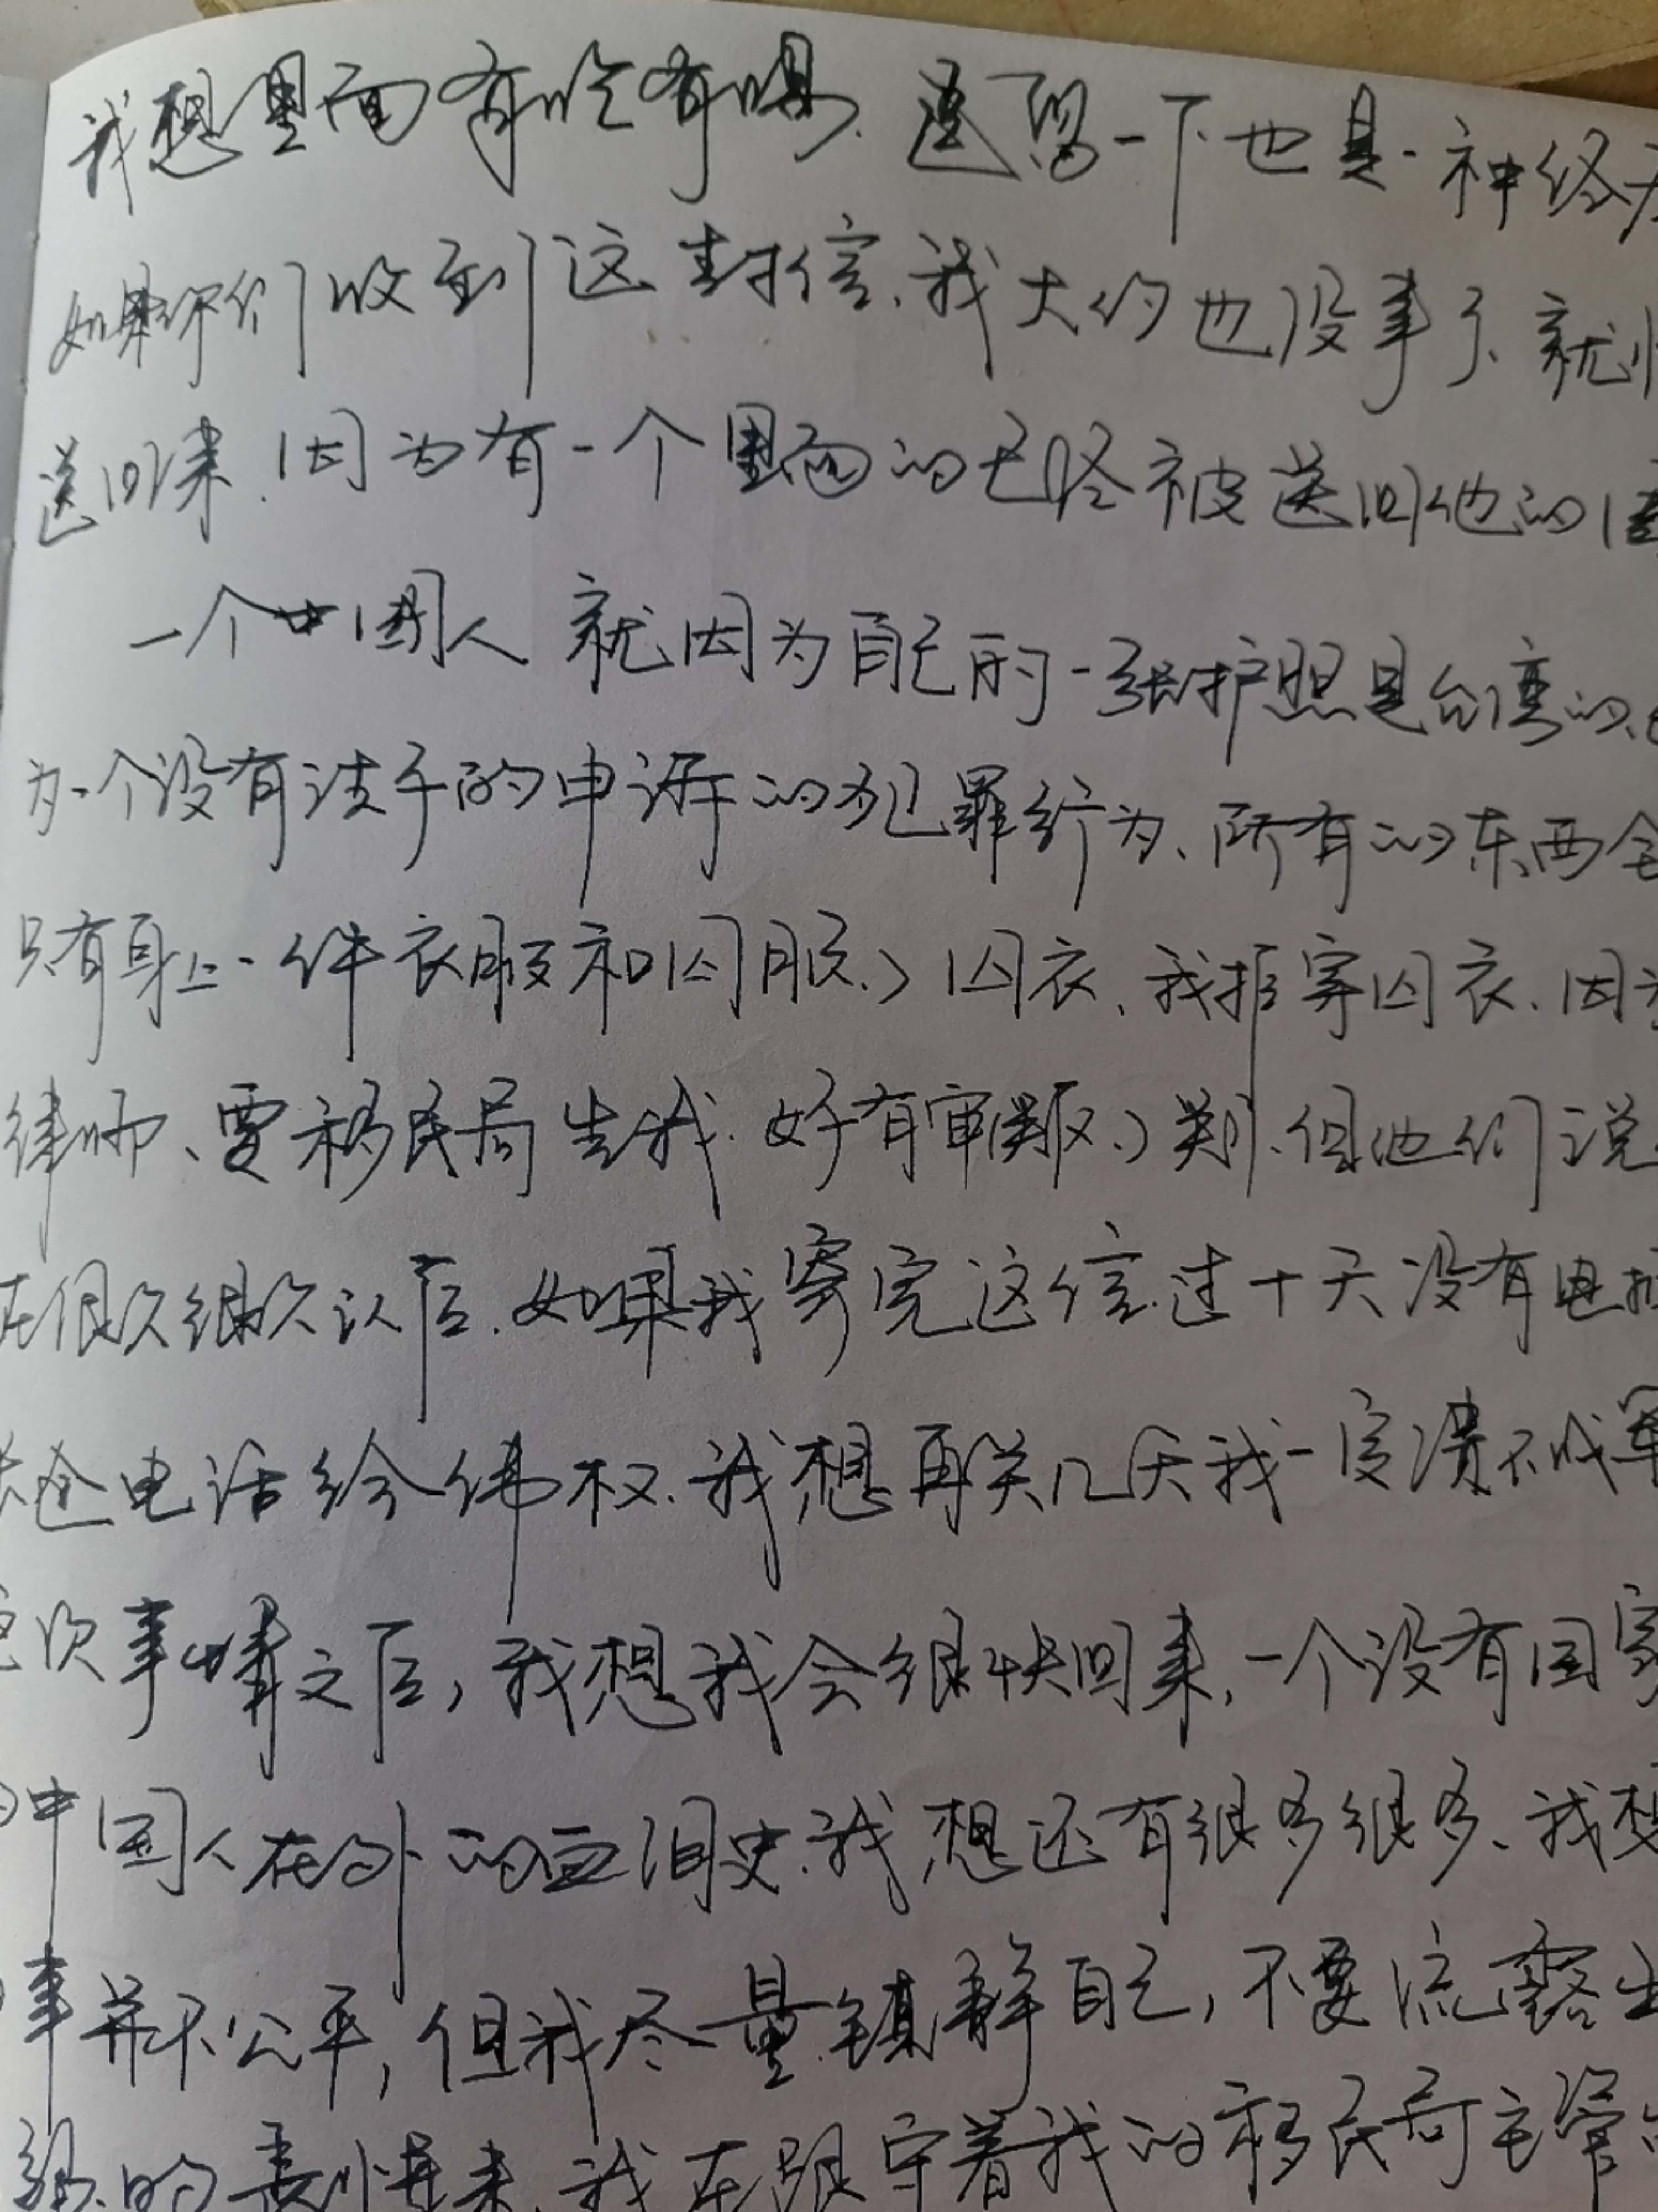 我想里面有吃有喝、遣留一下也是一神经
如果你们收到这封信、我大约也没事了、就
送回来、因为有一个里面的已经被送回他的国
一个中国人就因为自己的一张护照是台湾的、
为一个没有法子的申诉的犯罪行为、所有的东西全
只有身上一件衣服和囚服、）囚衣、我拒穿囚衣、因为
律师、要移民局告我、好有审判、）判、但他们说
在很久很久以后、如果我寄完这信过十天没有电
电话给伟权、我想再关几天我一定溃不成军
这次事情之后，我想我会很快回来，一个没有国家
的中国人在外的血泪史、我想还有很多很多、我想
事并不公平，但我尽量镇静自己，不要流露出
的表情来、我在跟守着我的移民局主管